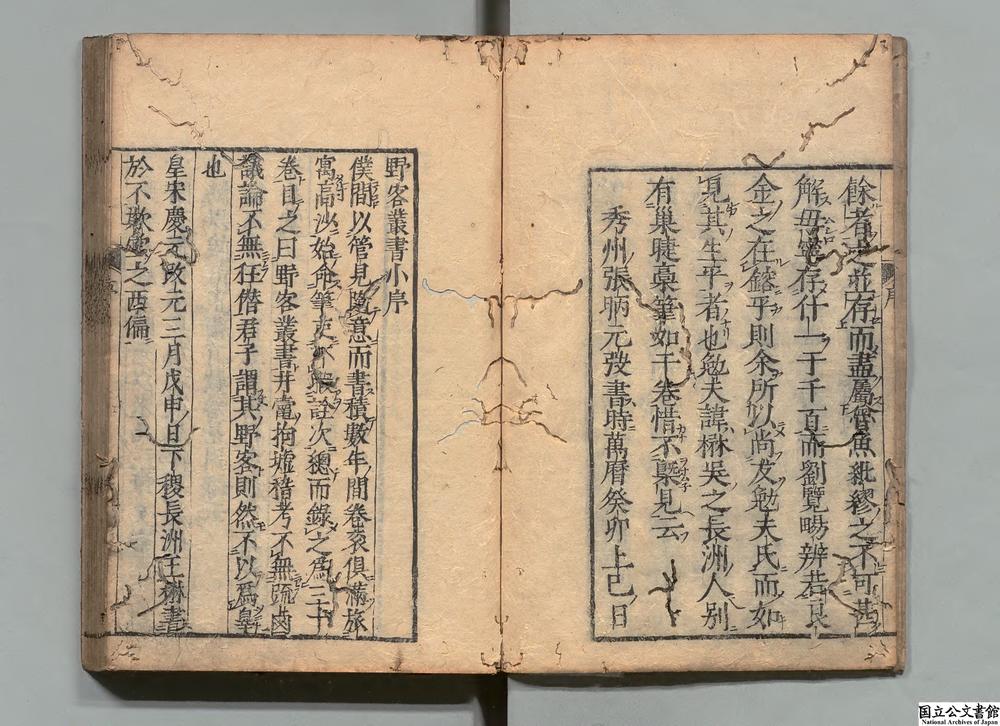 餘者或並存而盡屬魯魚紕繆之不可甚
解毋寧存什一于千百而劉覽暢辨若良
金之在鎔乎則余所以尚友勉夫氏而如
見其生平者也勉夫諱楙吳之長洲人別
有巢睫稾筆如干卷惜不槩見云
秀州張昞元弢書時萬曆癸卯上巳日
野客叢書小序
僕間以管見隨意而書積數年間卷袠俱滿旅
寓高沙始命筆吏不暇詮次總而錄之為三十
卷目之曰野客叢書井䵷拘墟稽考不無疏鹵
議論不無狂僭君子謂其野客則然不以為辠
也
皇宋慶元改元三月戊申日下稷長洲王楙書
於不欺室之西偏
国立公文書館
National Archives of Japan